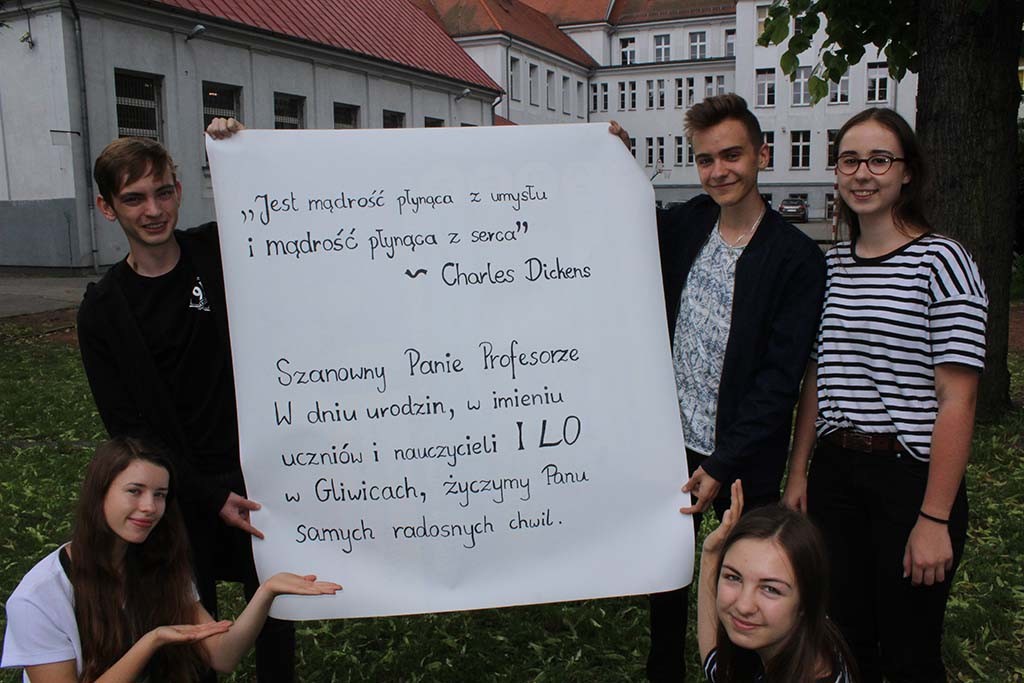 „Jest mądrość płynąca z umysłu
i mądrość płynąca z serca”
~ Charles Dickens
Szanowny Panie Profesorze
W dniu urodzin, w imieniu
uczniów i nauczycieli I LO
w Gliwicach, życzymy Panu
samych radosnych chwil.